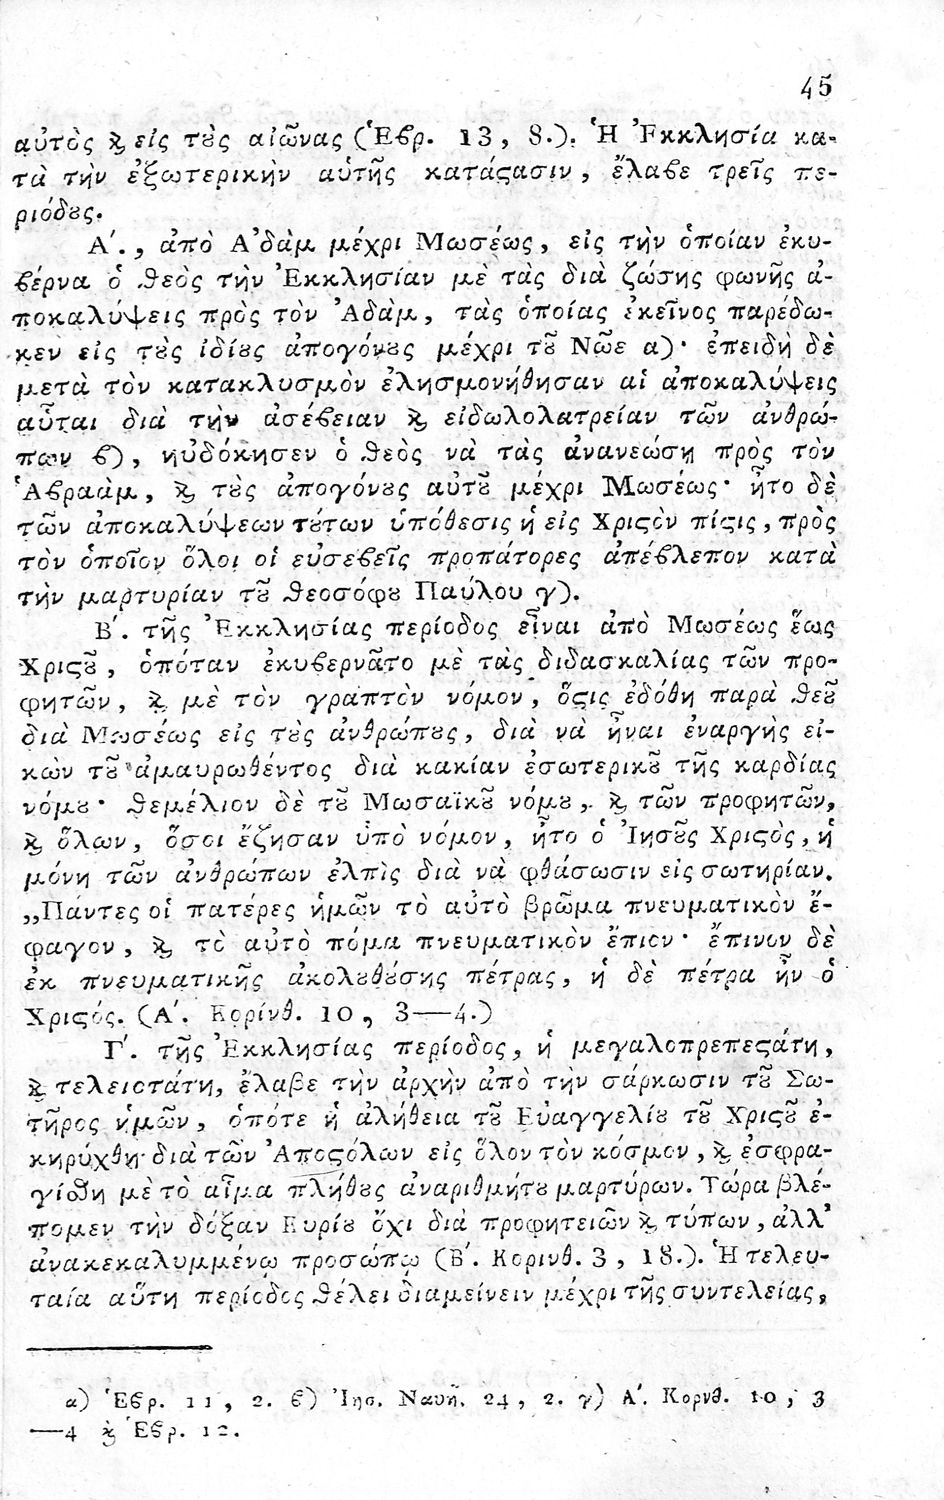 45
αὐτὸς ϗ εἰς τȣ̀ς αἰῶνας (Ἑϐρ. 13, 8.). Ἡ Ἐκκλησία κα-
τὰ τὴν ἐξωτερικὴν αὑτῆς κατάϛασιν, ἔλαϐε τρεῖς πε-
ριόδȣς.
Α΄., ἀπὸ Ἀδὰμ μέχρι Μωσέως, εἰς τὴν ὁποίαν ἐκυ-
ϐέρνα ὁ ϑεὸς τὴν Ἐκκλησίαν μὲ τὰς διὰ ζώσης φωνῆς ἀ-
ποκαλύψεις πρὸς τὸν Ἀδὰμ, τὰς ὁποίας ἐκεῖνος παρέδω-
κεν εἰς τȣ̀ς ἰδίȣς ἀπογόνȣς μέχρι τȣ͂ Νῶε α)· ἐπειδὴ δὲ
μετὰ τὸν κατακλυσμὸν ἐλησμονήθησαν αἱ ἀποκαλύψεις
αὗται διὰ τὴν ἀσέϐειαν ϗ εἰδωλολατρείαν τῶν ἀνθρώ-
πων ϐ), ηὐδόκησεν ὁ ϑεὸς νὰ τὰς ἀνανεώσῃ πρὸς τὸν
Ἀϐραὰμ, ϗ τȣ̀ς ἀπογόνȣς αὐτȣ͂ μέχρι Μωσέως· ἦτο δὲ
τῶν ἀποκαλύψεων τȣ́των ὑπόθεσις ἡ εἰς Χριϛὸν πίϛις, πρὸς
τὸν ὁποῖον ὅλοι οἱ εὐσεϐεῖς προπάτορες ἀπέϐλεπον κατὰ
τὴν μαρτυρίαν τȣ͂ ϑεοσόφȣ Παύλου γ).
Β΄. τῆς Ἐκκλησίας περίοδος εἶναι ἀπὸ Μωσέως ἕως
Χριϛȣ͂, ὁπόταν ἐκυϐερνᾶτο μὲ τὰς διδασκαλίας τῶν προ-
φητῶν, ϗ μὲ τὸν γραπτὸν νόμον, ὅϛις ἐδόθη παρὰ ϑεȣ͂
διὰ Μωσέως εἰς τȣ̀ς ἀνθρώπȣς, διὰ νὰ ἦναι ἐναργὴς εἰ-
κὼν τȣ͂ ἀμαυρωθέντος διὰ κακίαν ἐσωτερικȣ͂ τῆς καρδίας
νόμȣ· ϑεμέλιον δὲ τȣ͂ Μωσαϊκȣ͂ νόμȣ, ϗ τῶν προφητῶν,
ϗ ὅλων, ὅσοι ἔζησαν ὑπὸ νόμον, ἦτο ὁ Ἰησȣ͂ς Χριϛὸς, ἡ
μόνη τῶν ἀνθρώπων ἐλπὶς διὰ νὰ φθάσωσιν εἰς σωτηρίαν.
„Πάντες οἱ πατέρες ἡμῶν τὸ αὐτὸ βρῶμα πνευματικὸν ἔ-
φαγον, ϗ τὸ αὐτὸ πόμα πνευματικὸν ἔπιον· ἔπινον δὲ
ἐκ πνευματικῆς ἀκολȣθȣ́σης πέτρας, ἡ δὲ πέτρα ἦν ὁ
Χριϛός. (Α΄. Κορίνθ. 10, 3—4.)
Γ΄. τῆς Ἐκκλησίας περίοδος, ἡ μεγαλοπρεπεϛάτη,
ϗ τελειοτάτη, ἔλαβε τὴν ἀρχὴν ἀπὸ τὴν σάρκωσιν τȣ͂ Σω-
τῆρος ἡμῶν, ὁπότε ἡ ἀλήθεια τȣ͂ Εὐαγγελίȣ τȣ͂ Χριϛȣ͂ ἐ-
κηρύχθη διὰ τῶν Ἀποϛόλων εἰς ὅλον τὸν κόσμον, ϗ ἐσφρα-
γίσθη μὲ τὸ αἷμα πλήθȣς ἀναριθμήτȣ μαρτύρων. Τώρα βλέ-
πομεν τὴν δόξαν Κυρίȣ ὄχι διὰ προφητειῶν ϗ τύπων, ἀλλ'
ἀνακεκαλυμμένῳ προσώπῳ (Β΄. Κορινθ. 3, 18.). Ἡ τελευ-
ταία αὕτη περίοδος ϑέλει διαμείνειν μέχρι τῆς συντελείας,
α) Ἑϐρ. 11, 2. ϐ) Ἰησ. Ναυῆ. 24, 2. γ) Α΄. Κορνθ. 10, 3
—4 ϗ Ἑϐρ. 12.